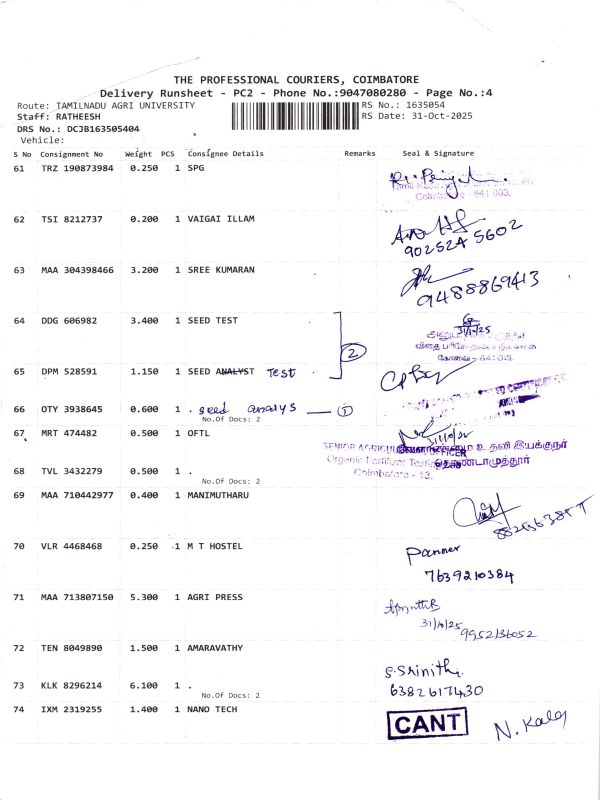 THE PROFESSIONAL COURIERS, COIMBATORE
Delivery Runsheet - PC2 - Phone No.:9047080280 - Page No.:4
Route: TAMILNADU AGRI UNIVERSITY RS No.: 1635054
Staff: RATHEESH RS Date: 31-Oct-2025
DRS No.: DCJB163505404
Vehicle:
S No Consignment No Weight PCS Consignee Details Remarks Seal & Signature
61 TRZ 190873984 0.250 1 SPG
Coimbatore - 641 003.
62 TSI 8212737 0.200 1 VAIGAI ILLAM
902524 5602
63 MAA 304398466 3.200 1 SREE KUMARAN
9488869413
64 DDG 606982 3.400 1 SEED TEST
31/10/25
2
65 DPM 528591 1.150 1 SEED ANALYST Test
66 OTY 3938645 0.600 1 . seed analys — 1
No.Of Docs: 2
67 MRT 474482 0.500 1 OFTL
SENIOR உதவி இயக்குநர்
Organic Fertilizer தொண்டாமுத்தூர்
Coimbatore - 13.
68 TVL 3432279 0.500 1 .
No.Of Docs: 2
69 MAA 710442977 0.400 1 MANIMUTHARU
70 VLR 4468468 0.250 1 M T HOSTEL
Panner
7639210384
71 MAA 713807150 5.300 1 AGRI PRESS
31/10/25
9952136052
72 TEN 8049890 1.500 1 AMARAVATHY
S.Srinithi
73 KLK 8296214 6.100 1 .
6382617430
No.Of Docs: 2
74 IXM 2319255 1.400 1 NANO TECH
CANT